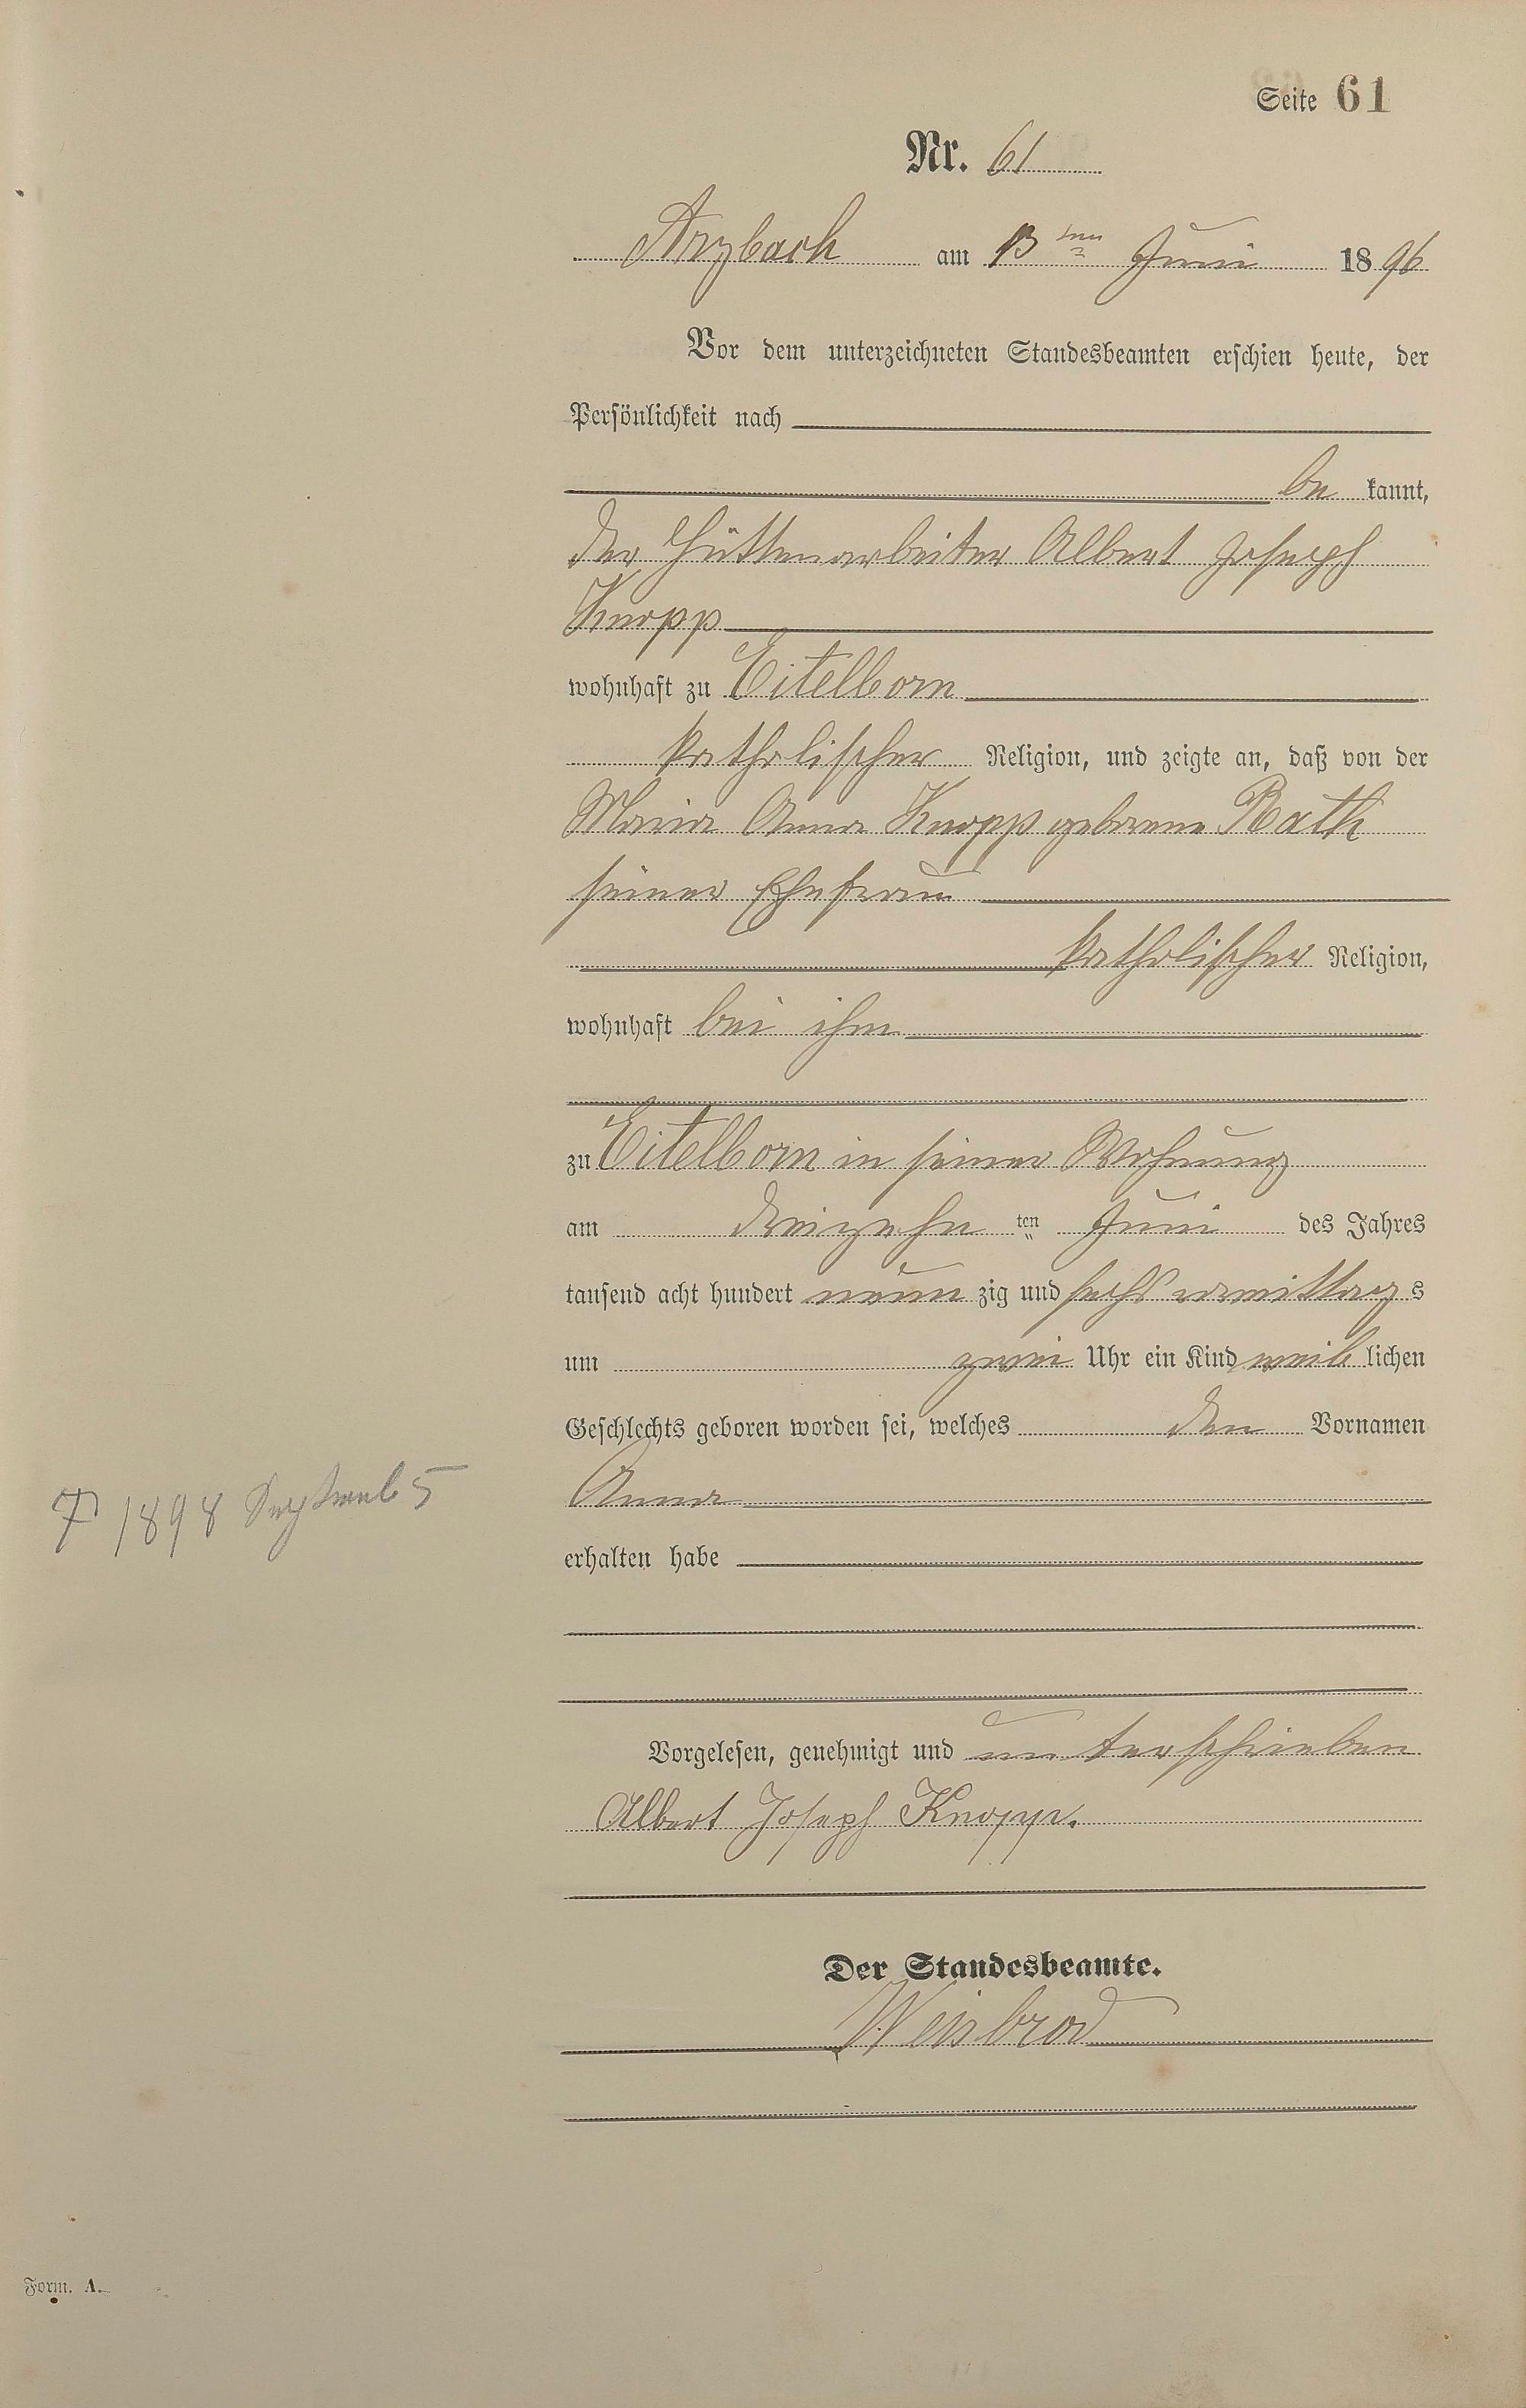 Seite 61
Nr. 61
Arzbach am 13ten Juni 1896
Vor dem unterzeichneten Standesbeamten erschien heute, der
Persönlichkeit nach
be kannt,
der Hüttenarbeiter Albert Joseph
Knopp
wohnhaft zu Eitelborn
katholischer Religion, und zeigte an, daß von der
Maria Anna Knopp geborene Rath
seiner Ehefrau
katholischer Religion,
wohnhaft bei ihm
zu Eitelborn in seiner Wohnung
am dreizehn ten Juni des Jahres
tausend acht hundert neun zig und sechs vormittag s
um zwei Uhr ein Kind weib lichen
Geschlechts geboren worden sei, welches den Vornamen
Anna
† 1898 Septemb 5
erhalten habe
Vorgelesen, genehmigt und unterschrieben
Albert Joseph Knopp.
Der Standesbeamte.
Weisbrod
Form. A.